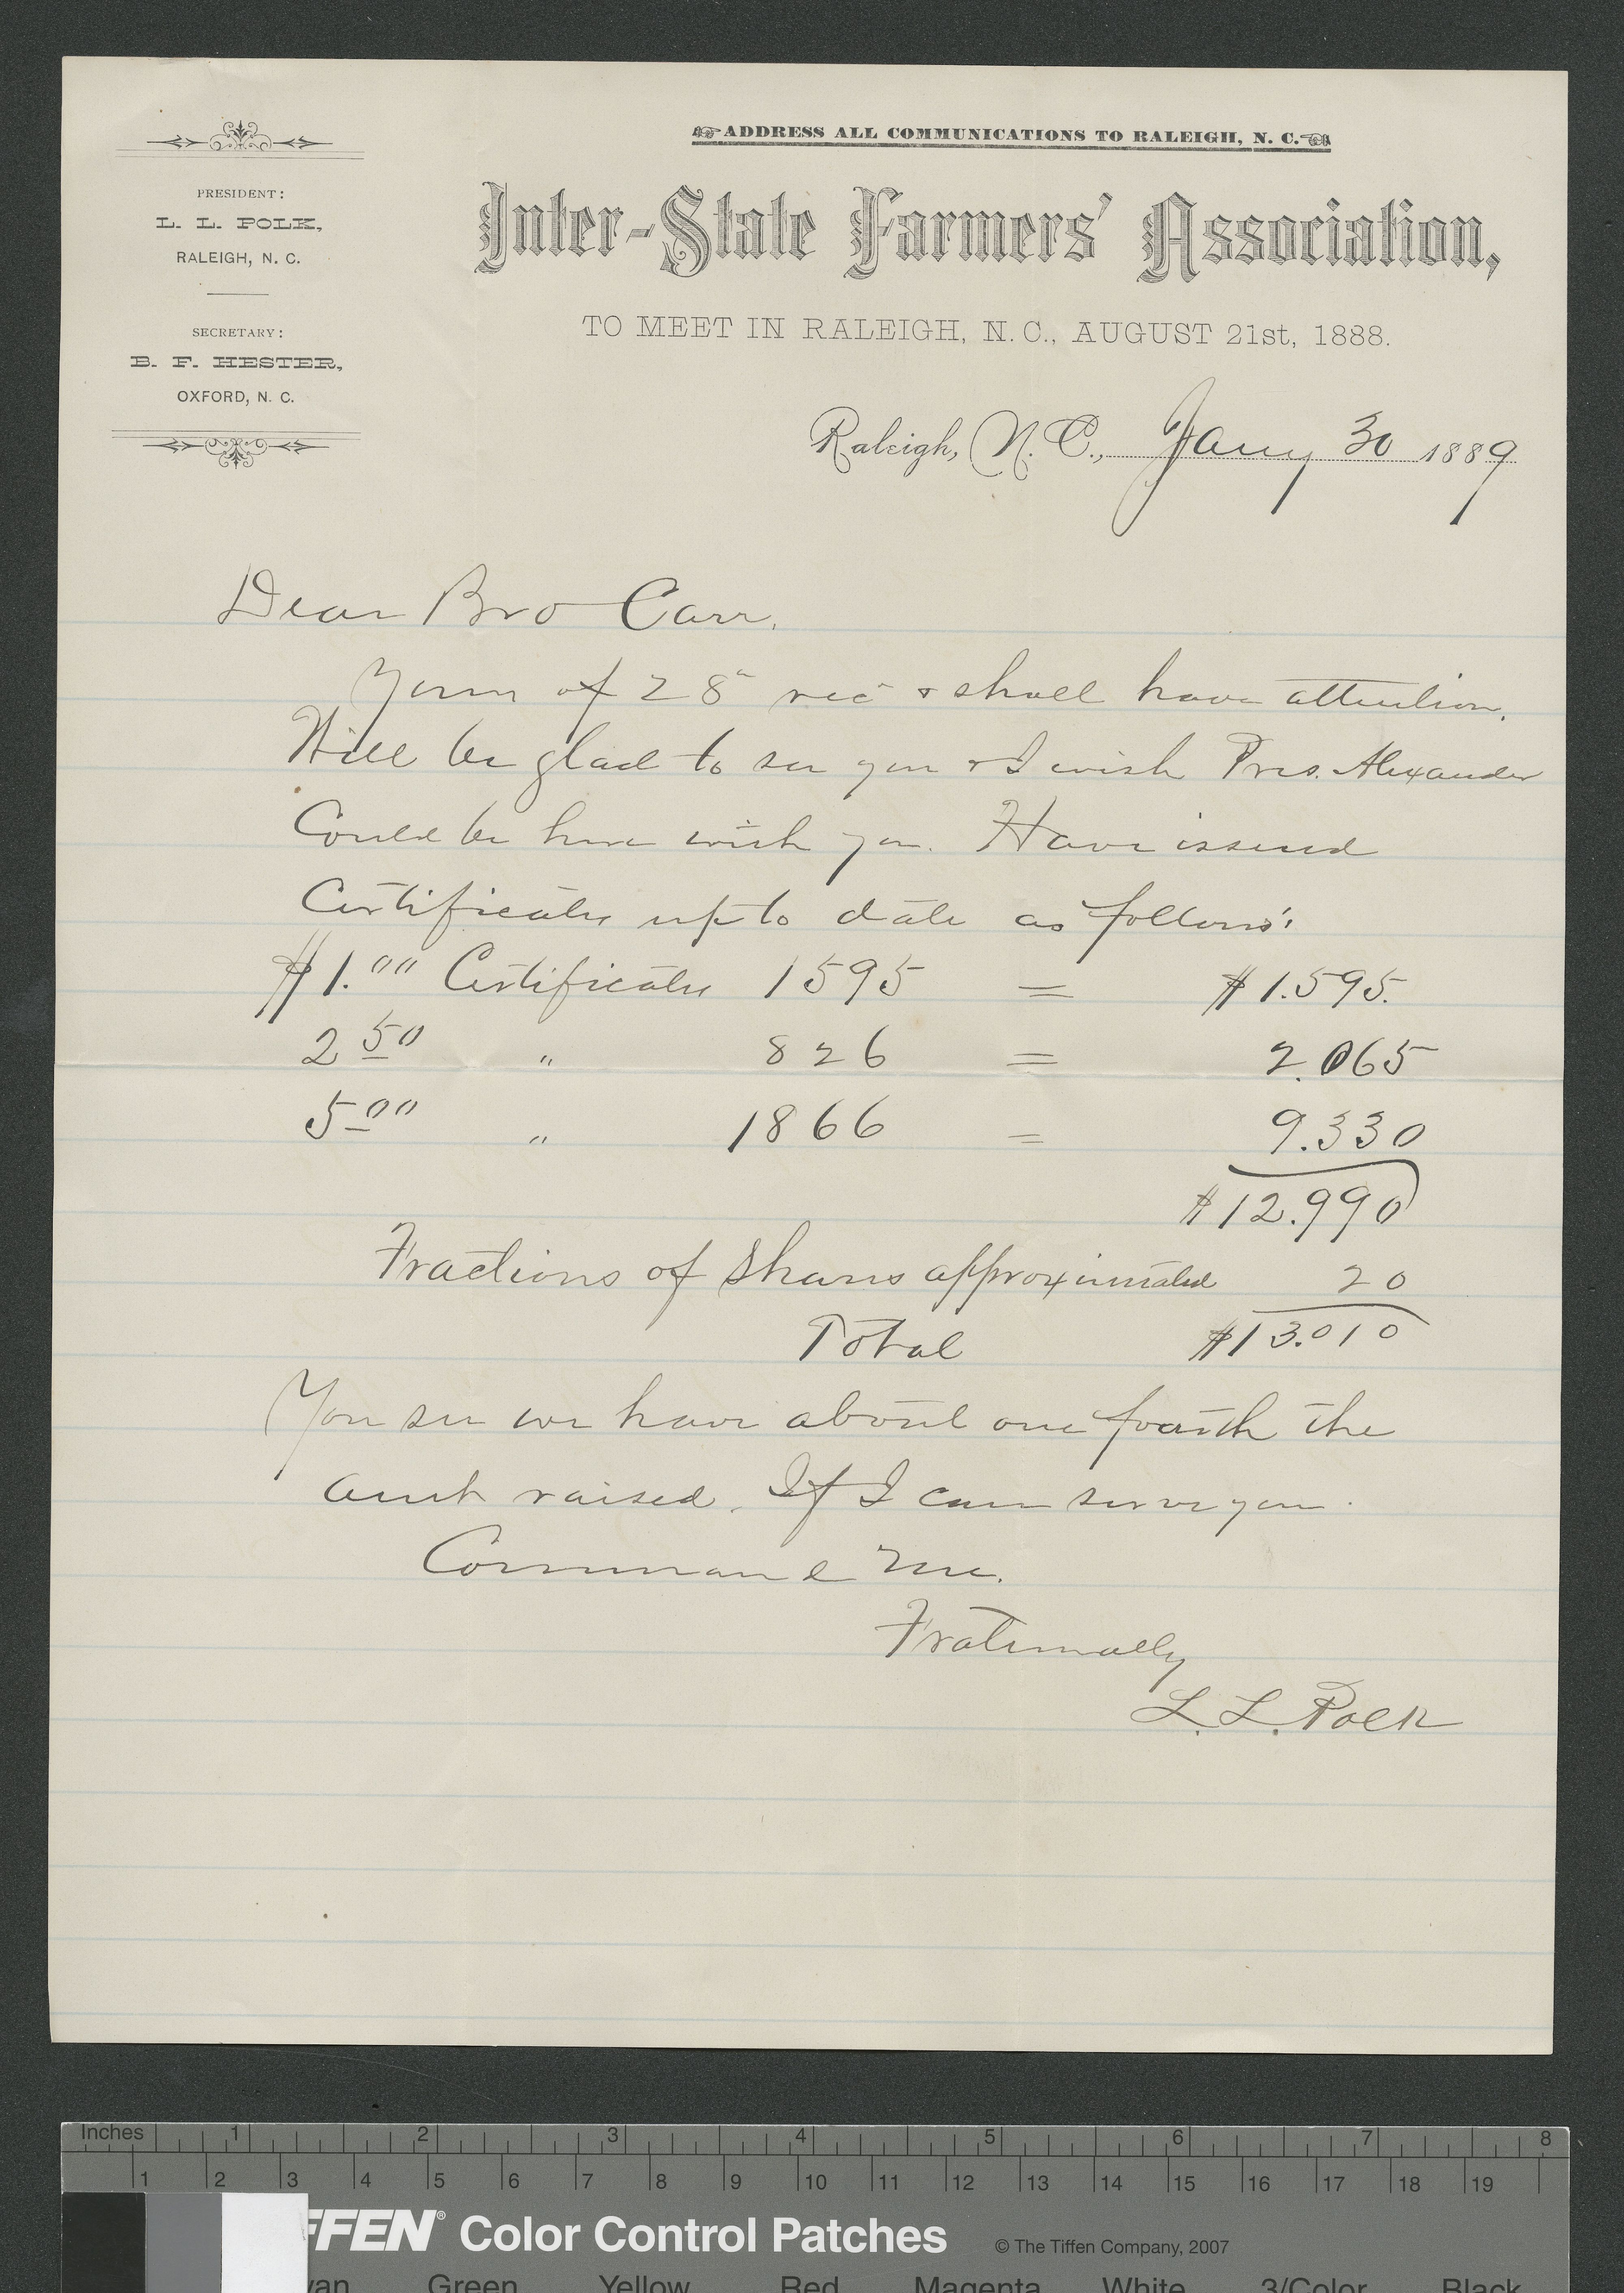 ADDRESS ALL COMMUNICATIONS TO RALEIGH, N. C.
PRESIDENT:
L. L. POLK,
RALEIGH, N. C.
SECRETARY:
B. F. HESTER,
OXFORD, N. C.
Inter-State Farmers' Association,
TO MEET IN RALEIGH, N. C., AUGUST 21st, 1888.
Raleigh, N. C., Jany 30 1889
Dear Bro Carr.
Yours of 28" rec & shall have attention.
Will be glad to see you & I wish Pres. Alexander
Could be here with you. Have issued
Certificates up to date as follows:
$1.00 Certificates 1595 = $1.595.
2 50 " 826 = 2.065
5 00 " 1866 = 9.330
$12.990
Fractions of shares approximated 20
Total $13.010
You see we have about one fourth the
amt raised. If I can serve you.
Command me.
Fraternally
L. L. Polk
Inches 1 2 3 4 5 6 7 8
1 2 3 4 5 6 7 8 9 10 11 12 13 14 15 16 17 18 19
FFEN® Color Control Patches © The Tiffen Company, 2007
yan Green Yellow Red Magenta White 3/Color Black